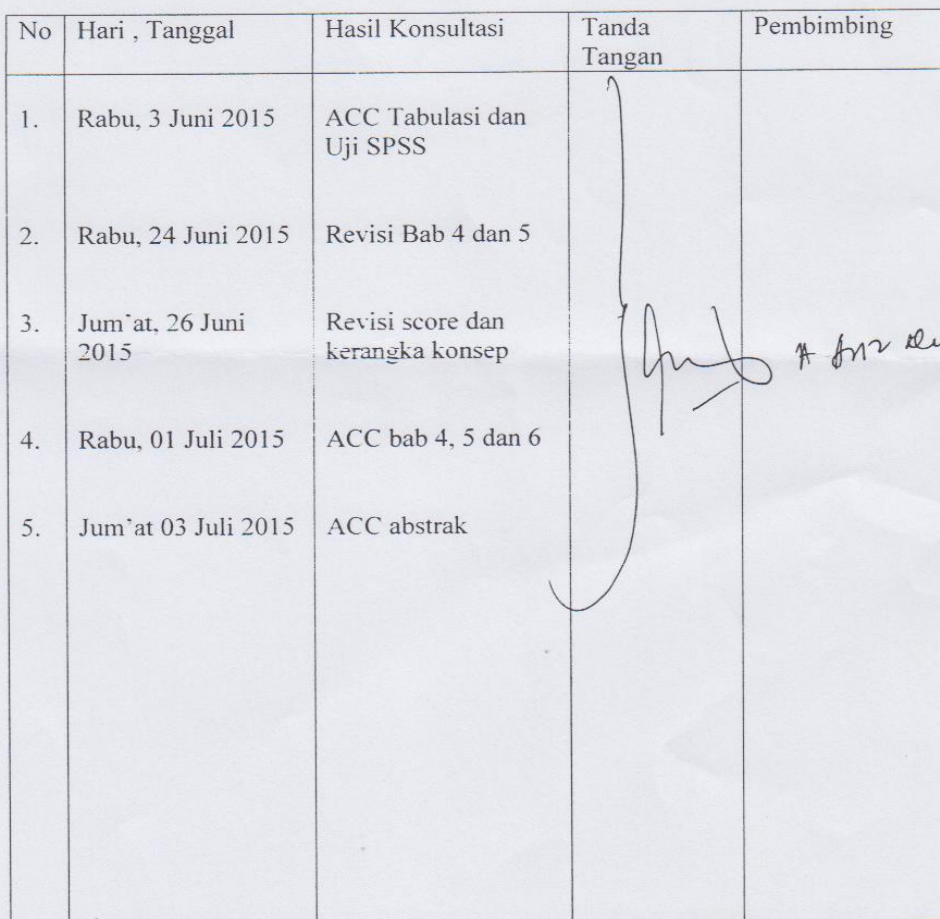 No Hari , Tanggal Hasil Konsultasi Tanda Tangan Pembimbing
1. Rabu, 3 Juni 2015 ACC Tabulasi dan
Uji SPSS
2. Rabu, 24 Juni 2015 Revisi Bab 4 dan 5
3. Jum'at, 26 Juni 2015 Revisi score dan
kerangka konsep
4. Rabu, 01 Juli 2015 ACC bab 4, 5 dan 6
5. Jum'at 03 Juli 2015 ACC abstrak